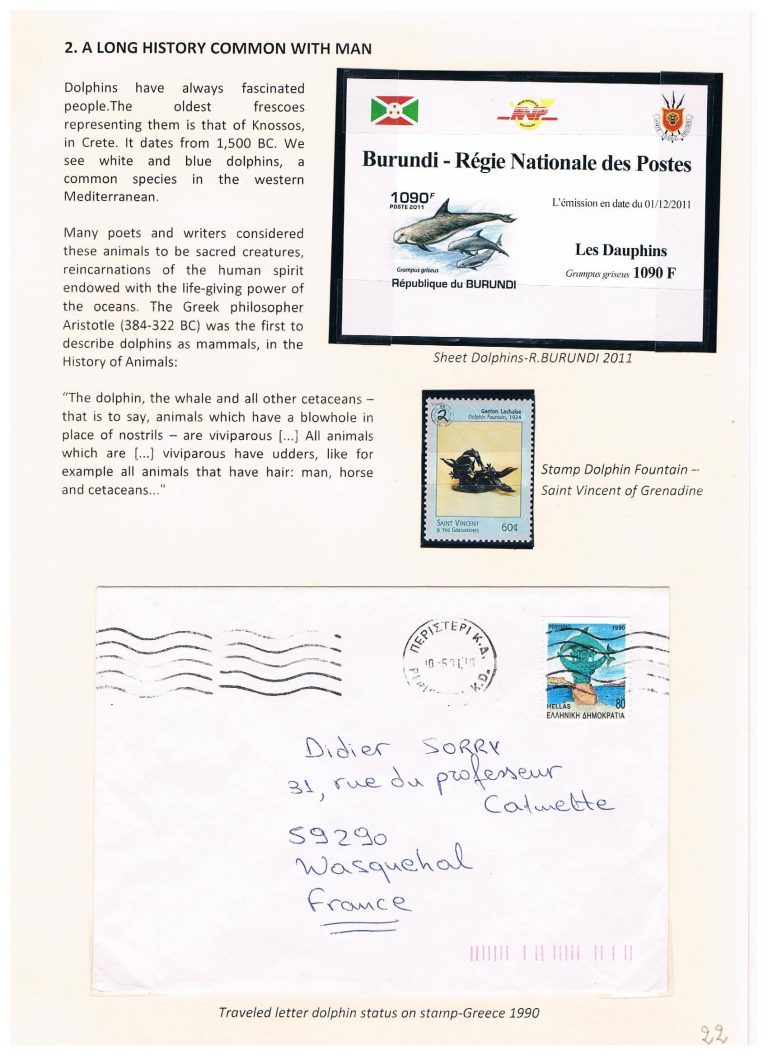 2. A LONG HISTORY COMMON WITH MAN
Dolphins have always fascinated
people.The oldest frescoes
representing them is that of Knossos,
in Crete. It dates from 1,500 BC. We
see white and blue dolphins, a
common species in the western
Mediterranean.
Many poets and writers considered
these animals to be sacred creatures,
reincarnations of the human spirit
endowed with the life-giving power of
the oceans. The Greek philosopher
Aristotle (384-322 BC) was the first to
describe dolphins as mammals, in the
History of Animals:
“The dolphin, the whale and all other cetaceans –
that is to say, animals which have a blowhole in
place of nostrils – are viviparous [...] All animals
which are [...] viviparous have udders, like for
example all animals that have hair: man, horse
and cetaceans..."
RNP
Burundi - Régie Nationale des Postes
1090F
POSTE 2011
L'émission en date du 01/12/2011
Les Dauphins
Grampus griseus 1090 F
Grampus griseus
République du BURUNDI
Sheet Dolphins-R.BURUNDI 2011
2
Gaston Lachaise
Dolphin Fountain, 1924
SAINT VINCENT
& THE GRENADINES
60¢
Stamp Dolphin Fountain –
Saint Vincent of Grenadine
ΠΕΡΙΣΤΕΡΙ Κ.Δ.
K.D.
1990
HELLAS 80
ΕΛΛΗΝΙΚΗ ΔΗΜΟΚΡΑΤΙΑ
Didier SORRY
31, rue du professeur
Calmette
59290
Wasquehal
France
Traveled letter dolphin status on stamp-Greece 1990
22